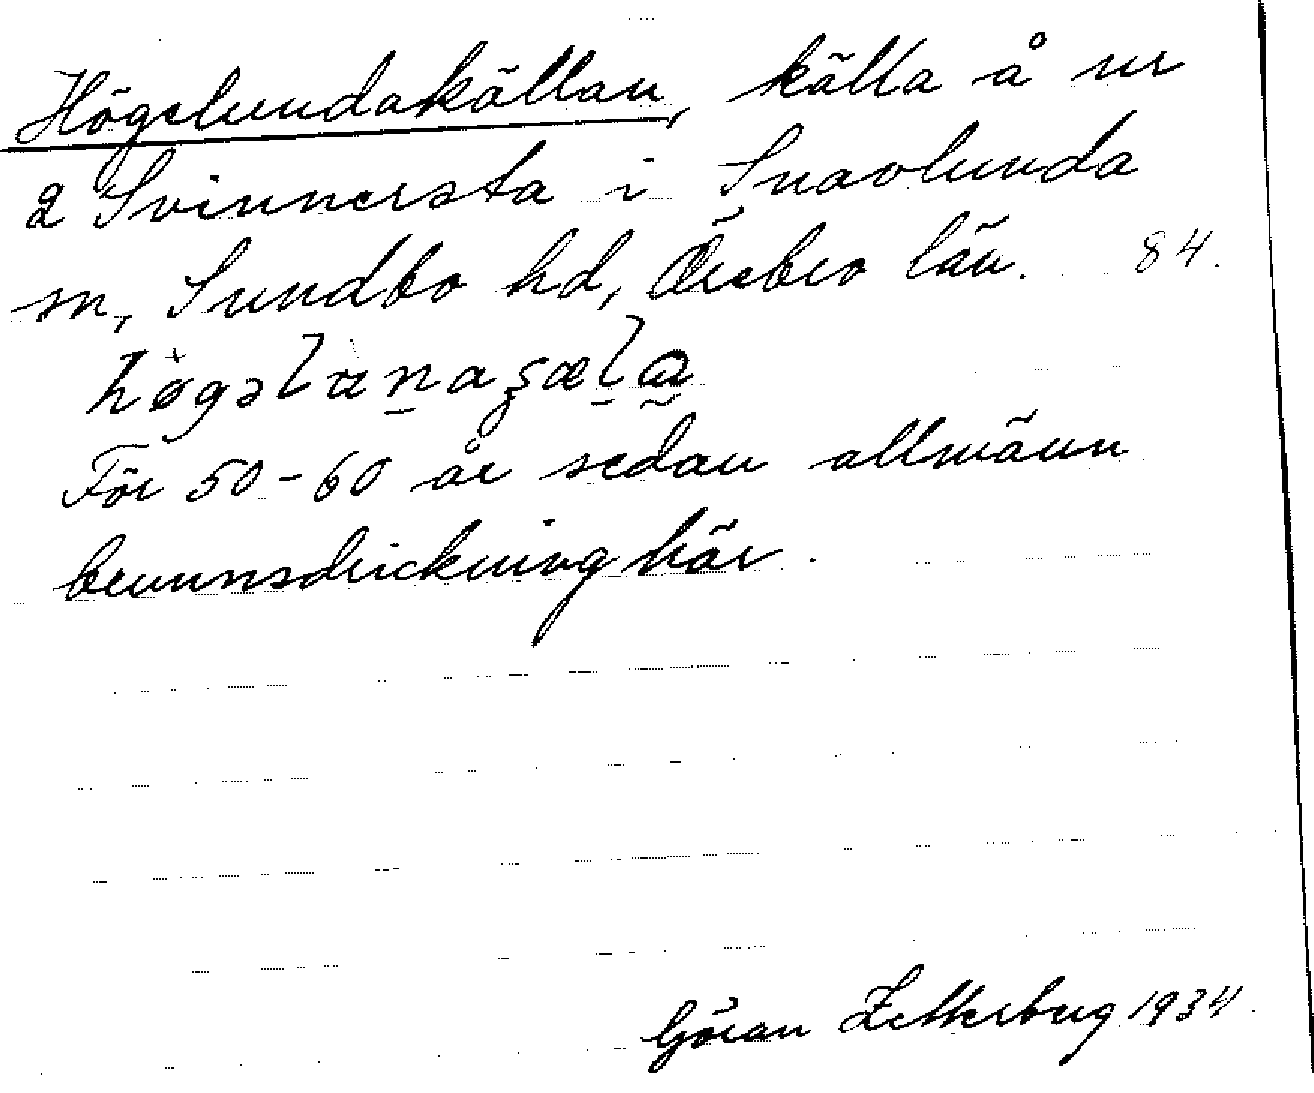 Högslundakällan, källa å nr
2 Svinnersta i Snavlunda
sn, Sundbo hd, Örebro län. 84.
För 50-60 år sedan allmänn
brunnsdrickning här.
Göran Zetterberg 1934.